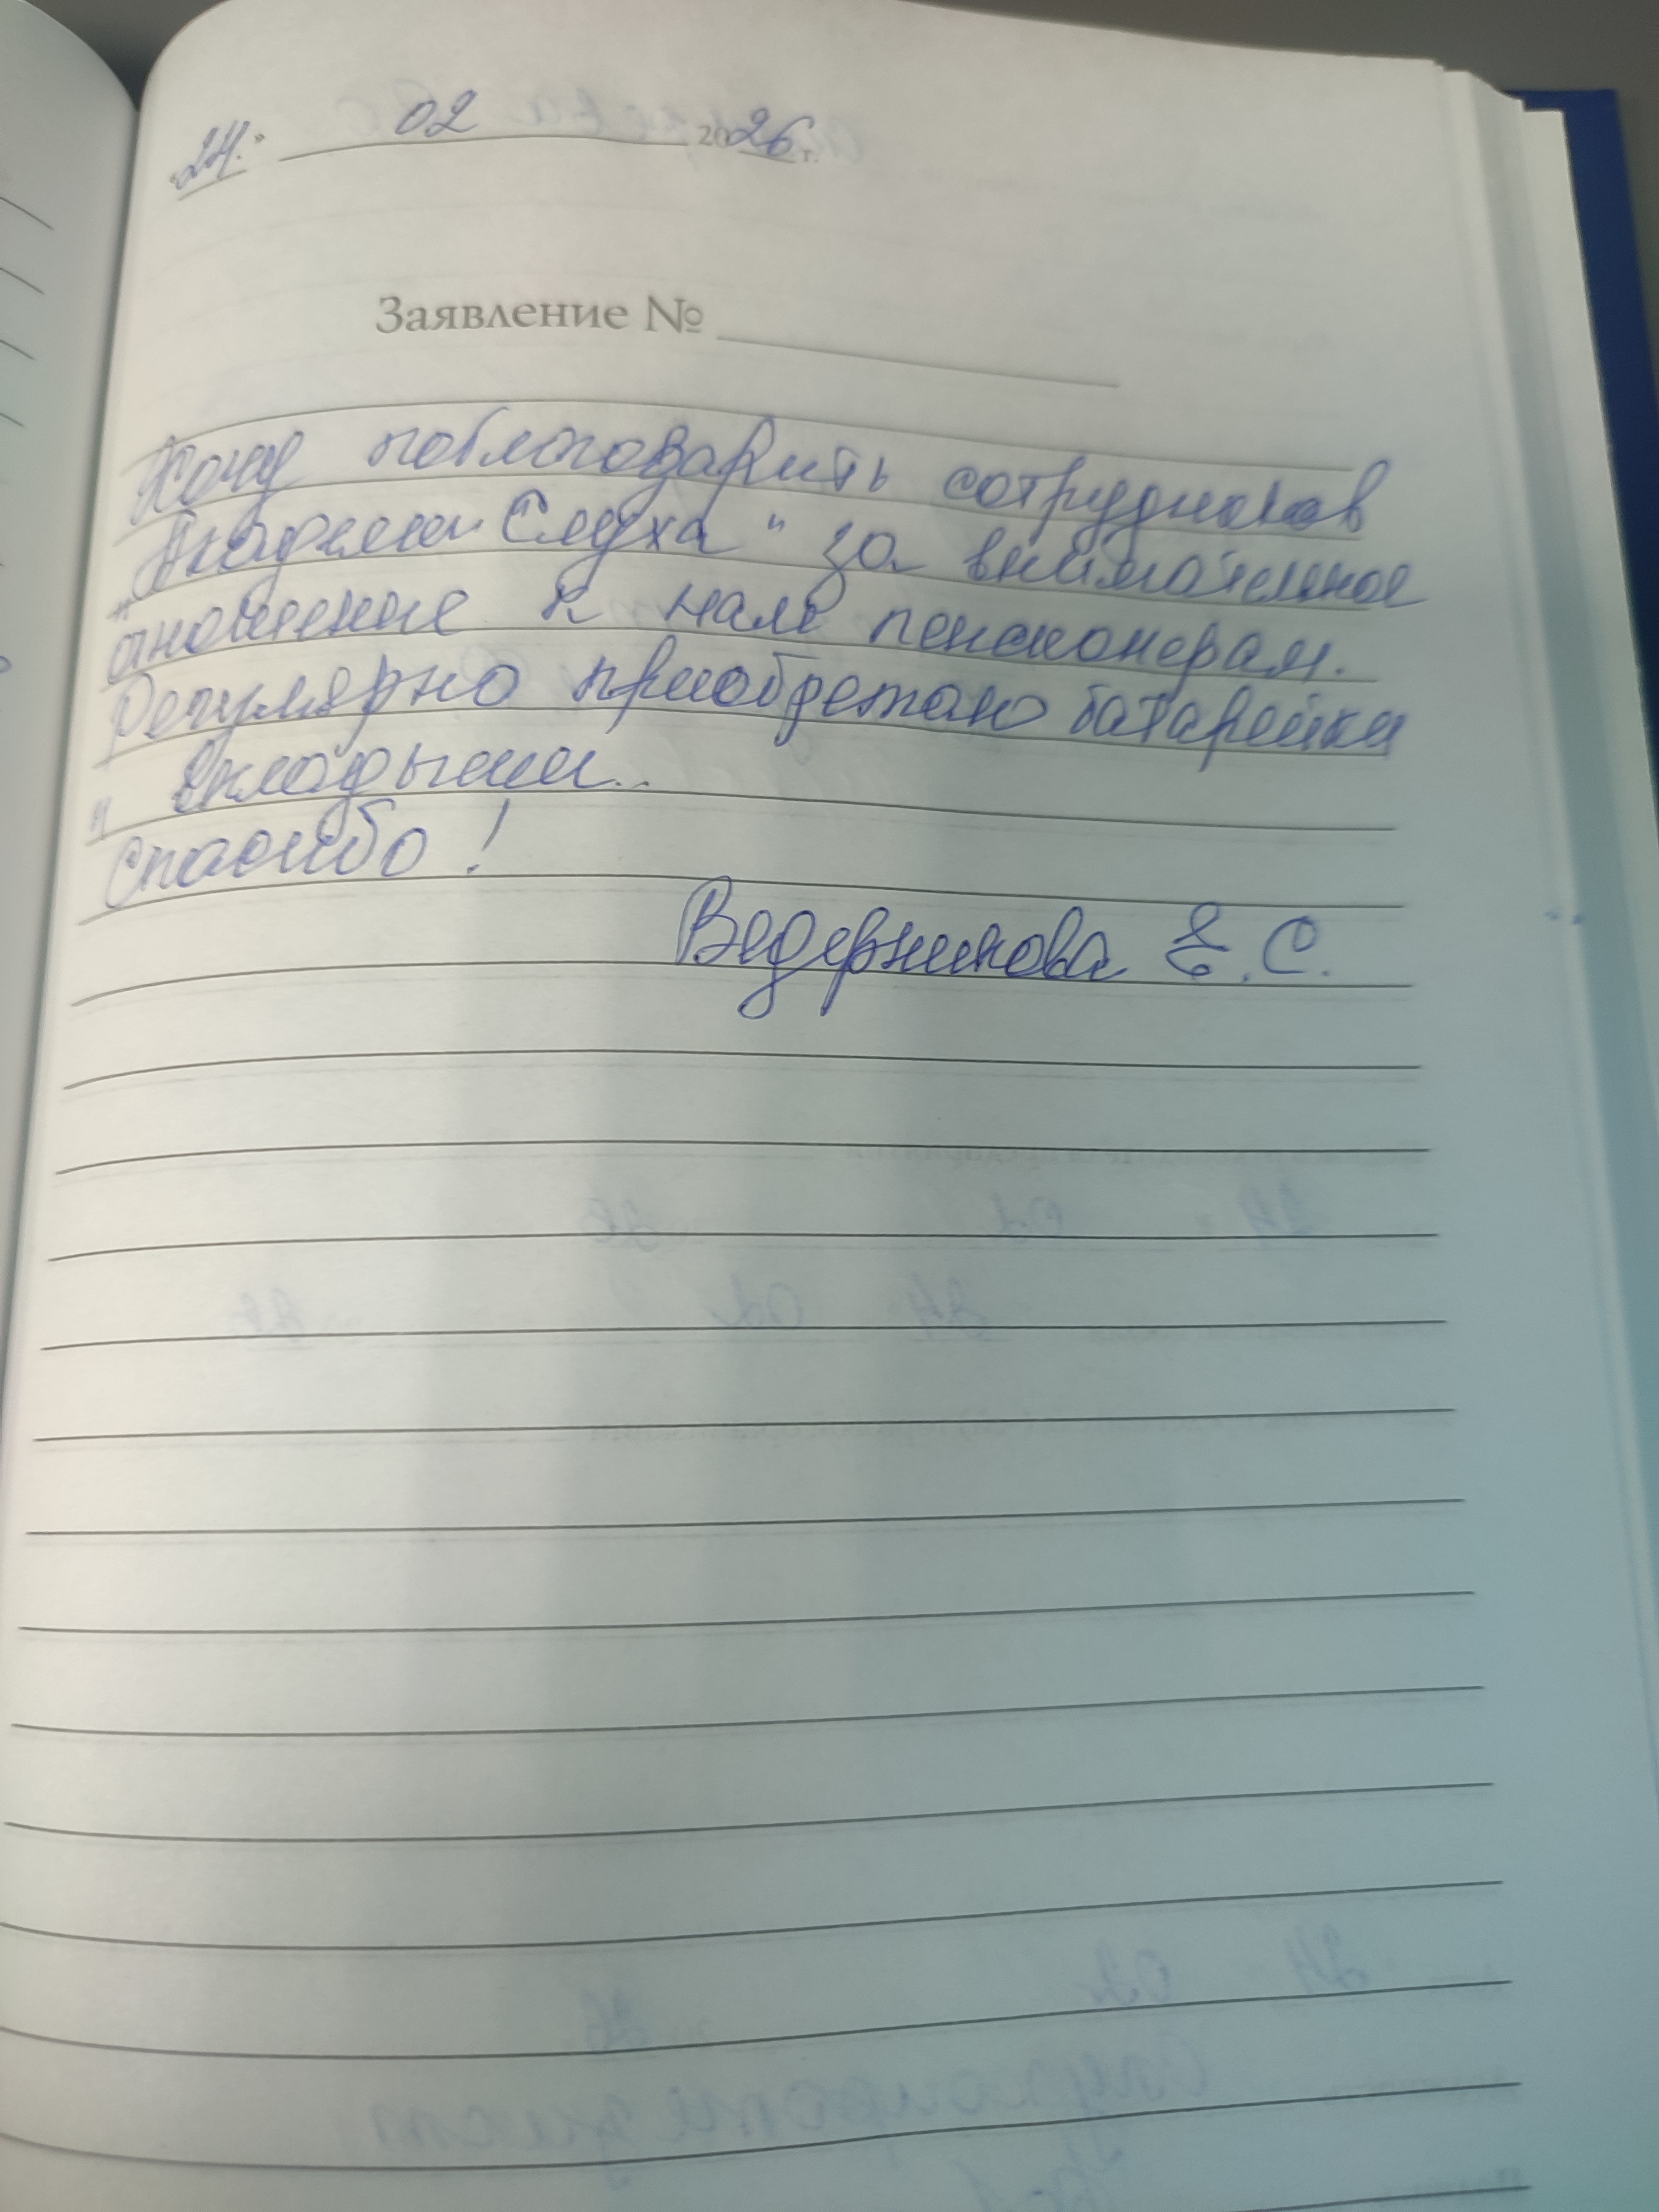 «24.» 02 2026 г.
Заявление №
Хочу поблагодарить сотрудников
„Академии Слуха" за внимательное
отношение к нам пенсионерам.
Регулярно приобретаю батарейки
и вкладыши..
Спасибо!
Ведерникова Е.С.